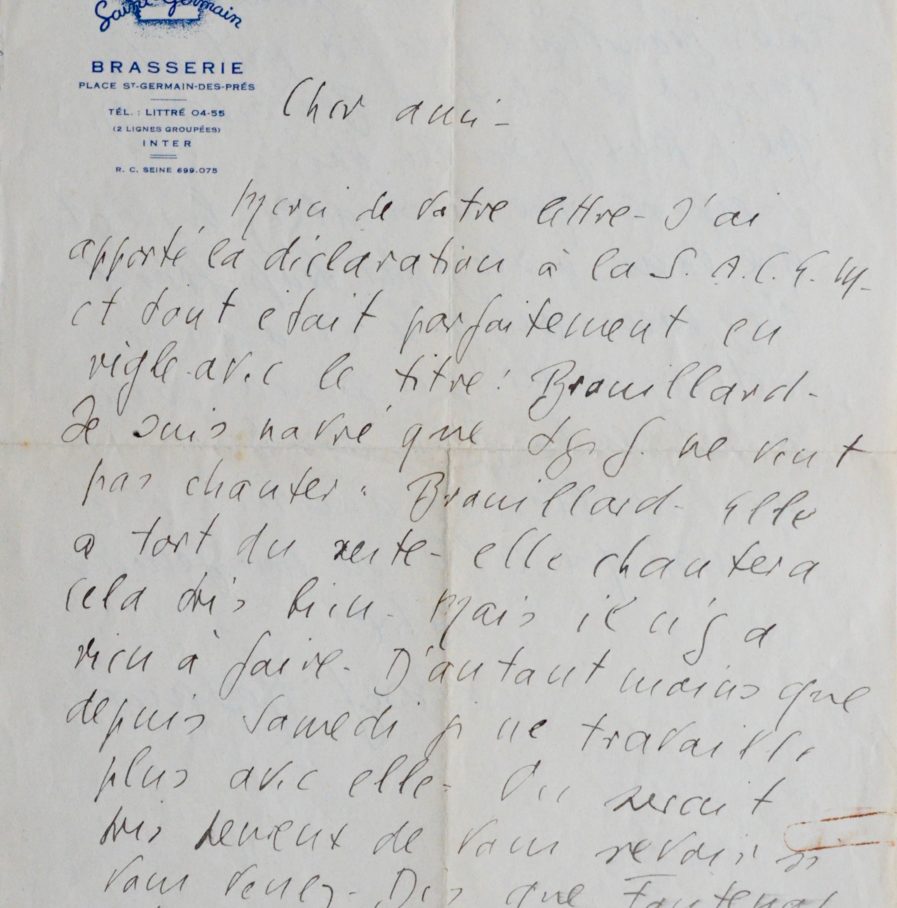 Saint-Germain
BRASSERIE
PLACE ST-GERMAIN-DES-PRÉS
TÉL. : LITTRÉ 04-55
(2 LIGNES GROUPÉES)
INTER
R. C. SEINE 699.075
Cher ami -
Merci de votre lettre - J'ai
apporté la déclaration à la S. A. C. E. M.
et tout était parfaitement en
règle avec le titre : Brouillard -
Je suis navré que G. ne veut
pas chanter : Brouillard - Elle
a tort du reste - elle chantera
cela très bien - Mais il n'y a
rien à faire - D'autant moins que
depuis Samedi je ne travaille
plus avec elle - On serait
très heureux de vous revoir si
vous venez - Dès que